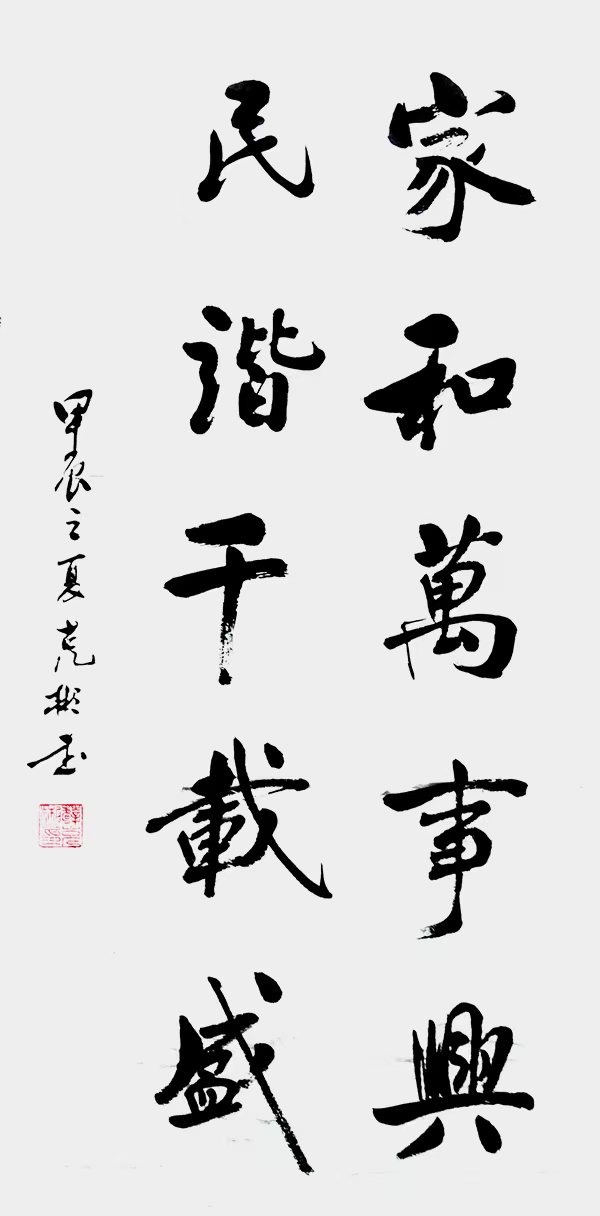 家和萬事興
民諧千載盛
甲辰之夏彬書